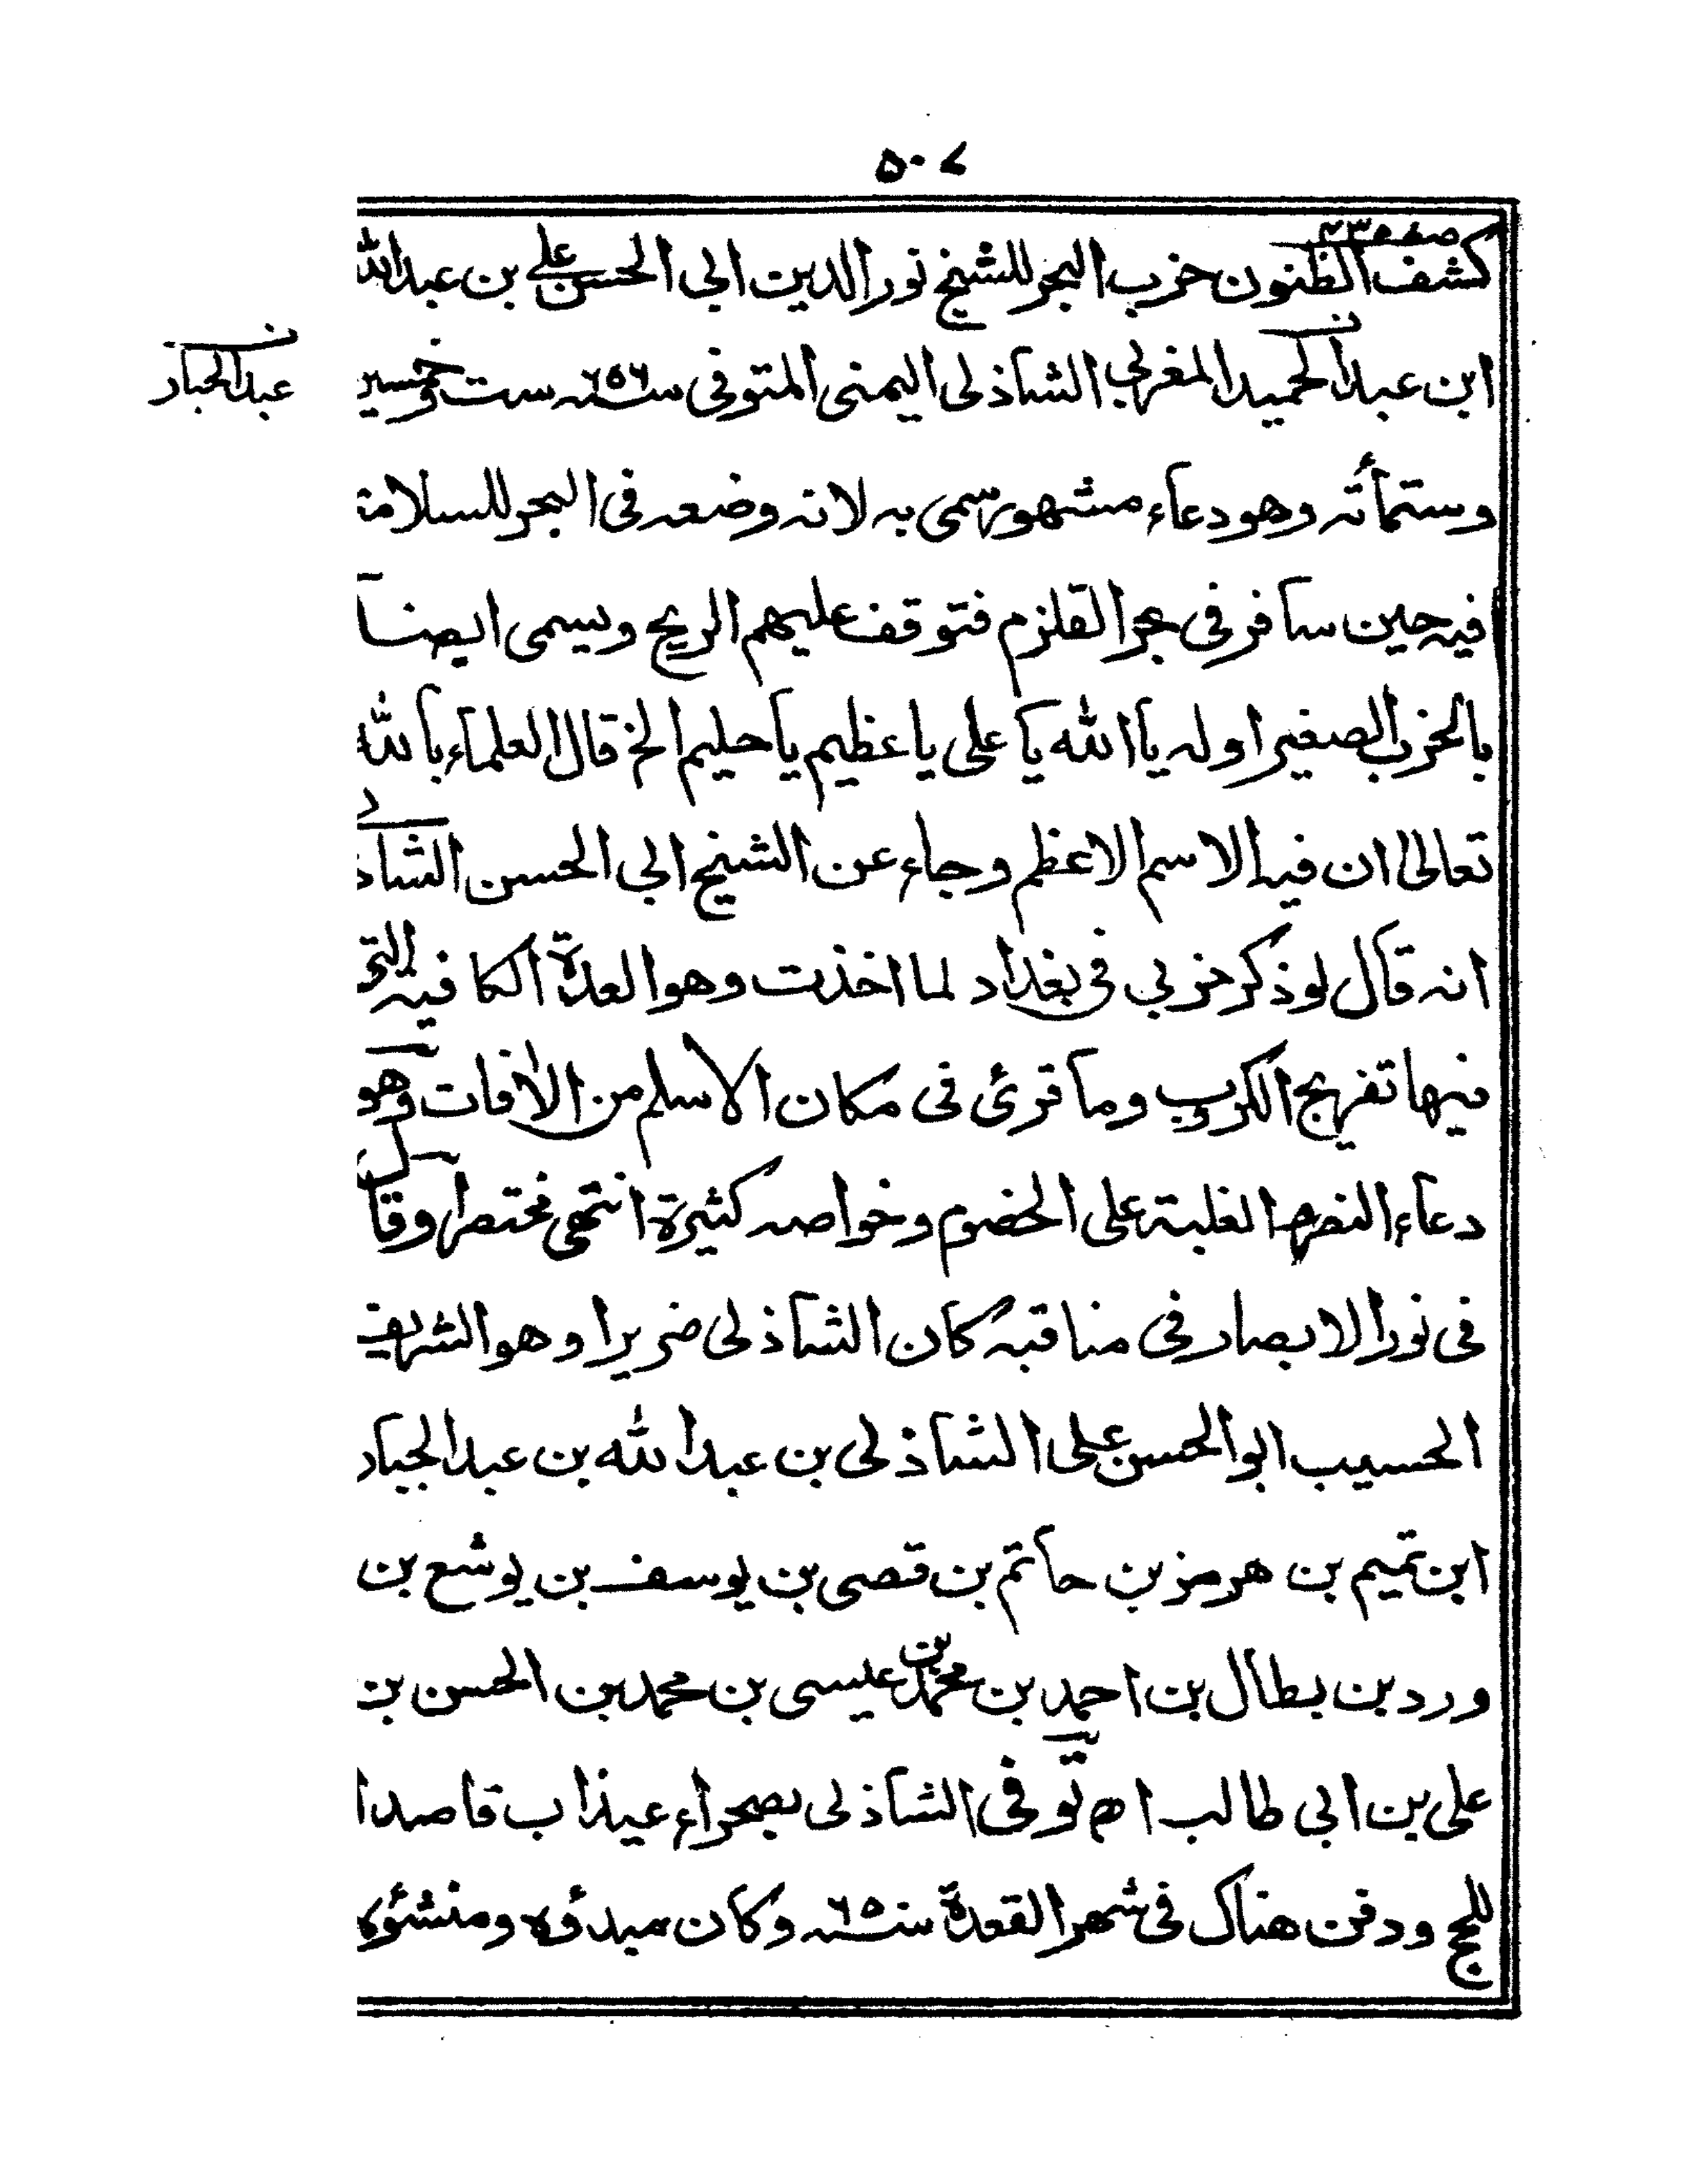 ٥٠٧
كشف الظنون حزب البحر للشيخ نور الدين ابي الحسن علي بن عبد الله
ابن عبد الحميد المغربي الشاذلى اليمنى المتوفى سنة ٦٥٦ ست وخمسين
عبد الجبار
وستمأته وهو دعاء مشهور سمى به لانه وضعه فى البحر للسلامة
فيه حين سافر فى بحر القلزم فتوقف عليهم الريح ويسمى ايضا
بالحزب الصغير اوله يا الله يا على يا عظيم يا حليم الخ قال العلماء بالله
تعالى ان فيه الاسم الاعظم وجاء عن الشيخ ابي الحسن الشاذ
انه قال لو ذكر حزبي فى بغداد لما اخذت وهو العدة الكافية التى
فيها تفريج الكروب وما قرئ فى مكان الا سلم من الافات وهو
دعاء النصر والغلبة على الخصوم وخواصه كثيرة انتهى مختصرا وقال
فى نور الابصار فى مناقبه كان الشاذلى ضريرا وهو الشريف
الحسيب ابو الحسن على الشاذلى بن عبد الله بن عبد الجبار
ابن تميم بن هرمز بن حاتم بن قصى بن يوسف بن يوشع بن
ورد بن بطال بن احمد بن محمد بن عيسى بن محمد بن الحسن بن
على بن ابي طالب اه توفى الشاذلى بصحراء عيذاب قاصدا
للحج ودفن هناك فى شهر القعدة سنة ٦٥ وكان مبدؤه ومنشئوه